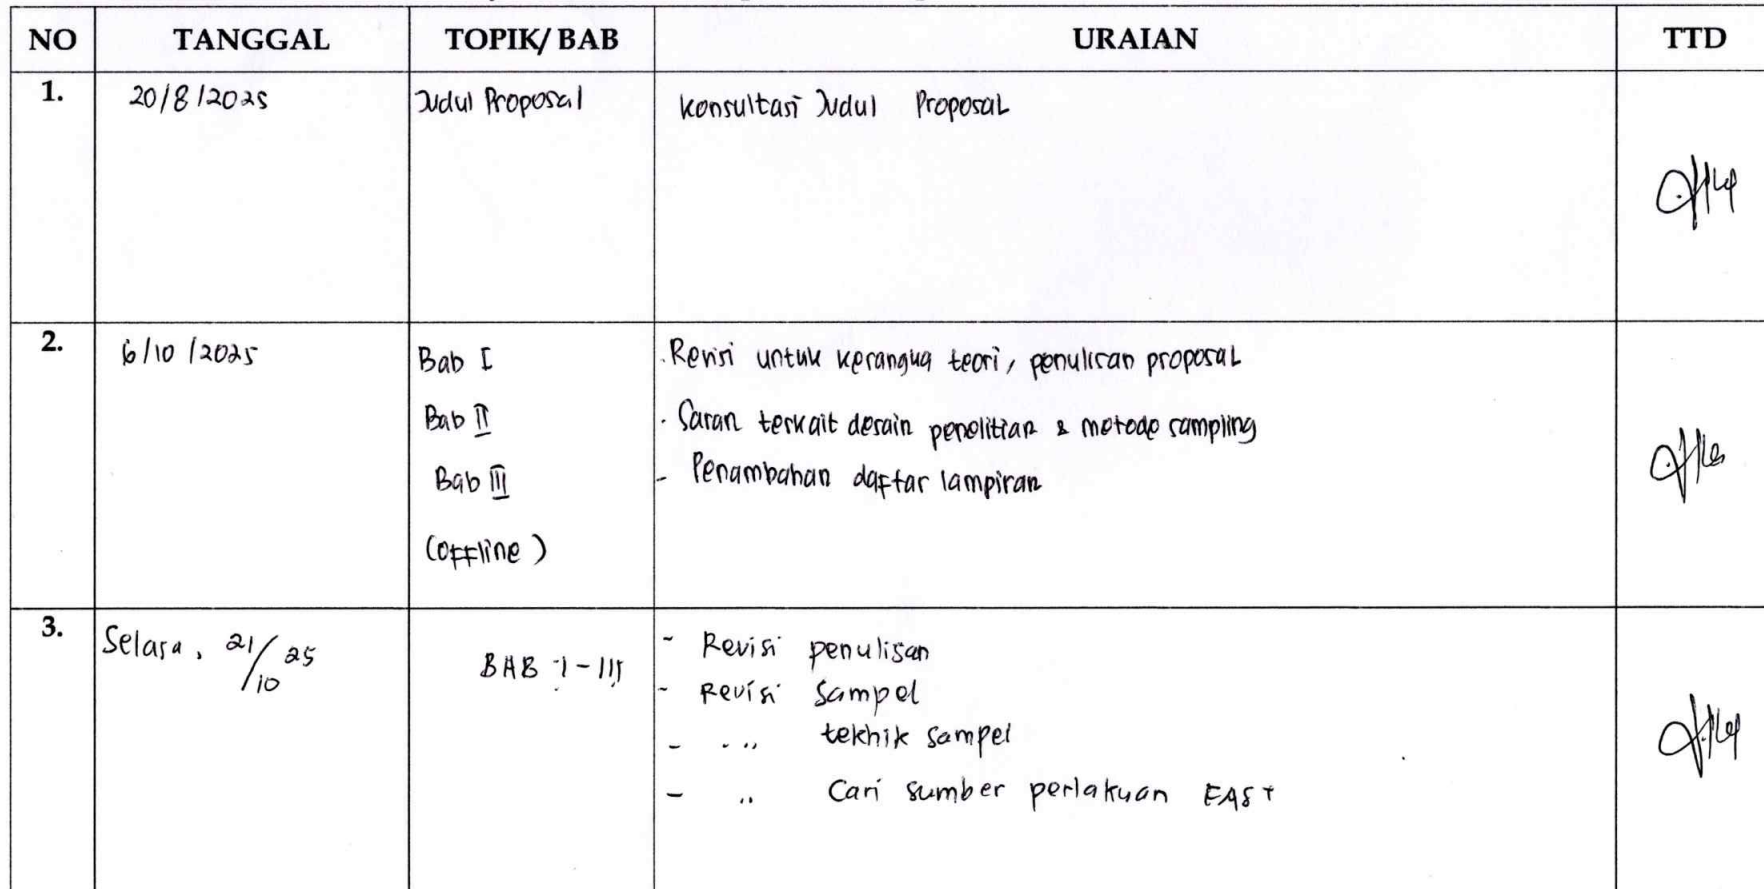 NO TANGGAL TOPIK/ BAB URAIAN TTD
1. 20/8/2025 Judul Proposal Konsultasi Judul Proposal
2. 6/10/2025 Bab I - Revisi untuk kerangka teori, penulisan proposal
Bab II - Saran terkait desain penelitian & metode sampling
Bab III - Penambahan daftar lampiran
(offline)
3. Selasa, 21/10 25 BAB I - III - Revisi penulisan
- Revisi Sampel
- " teknik sampel
- " Cari sumber perlakuan EAST